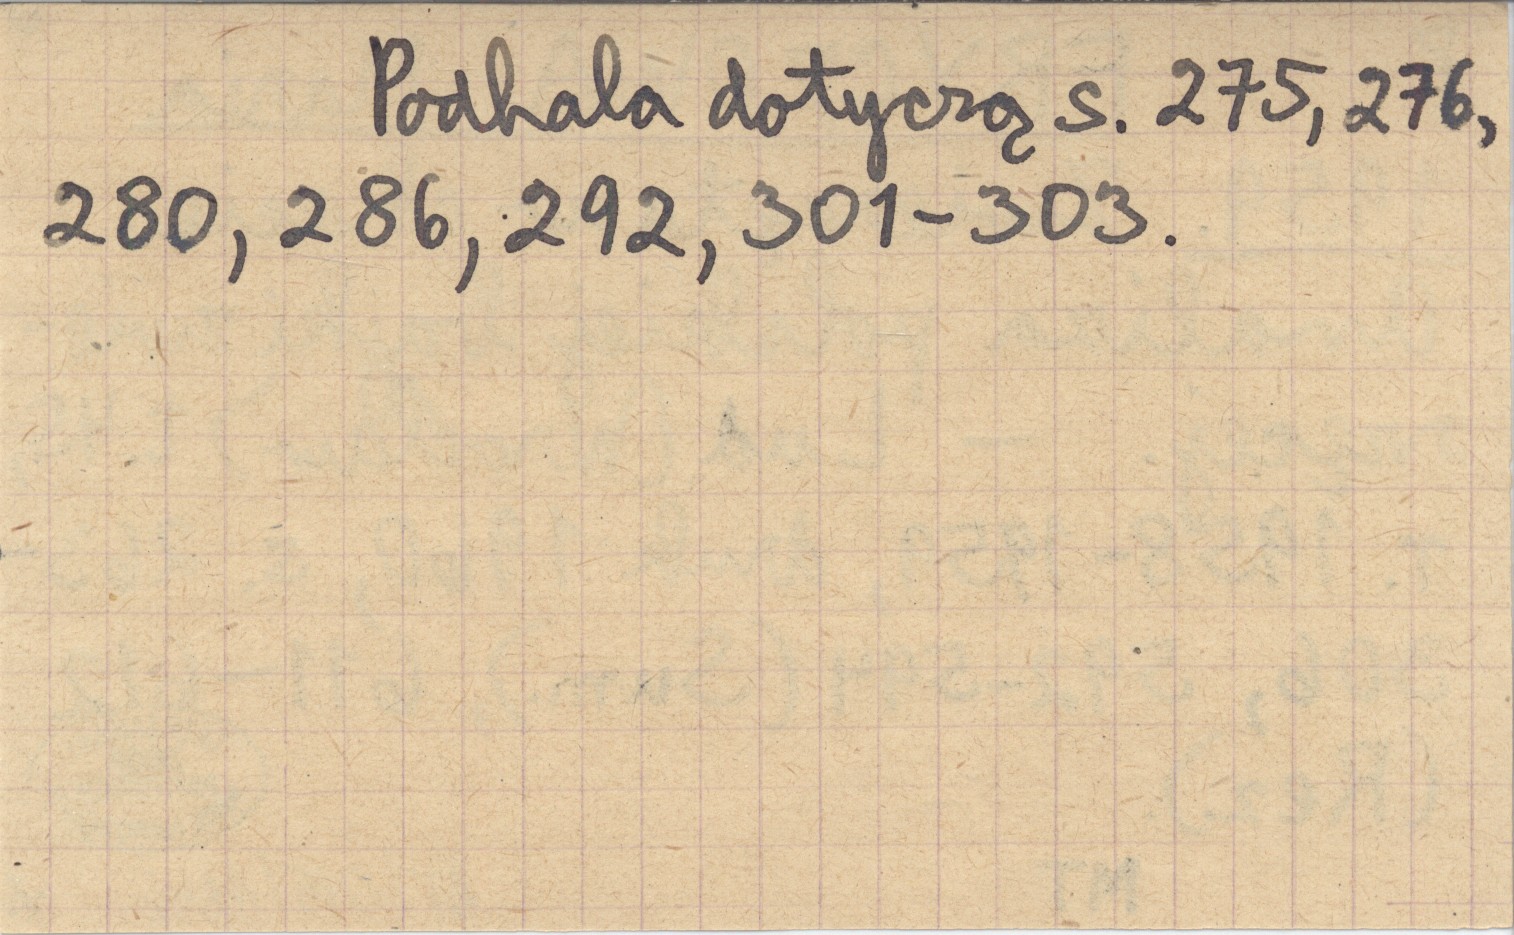 Podhala dotyczą s. 275, 276,
280, 286, 292, 301-303.